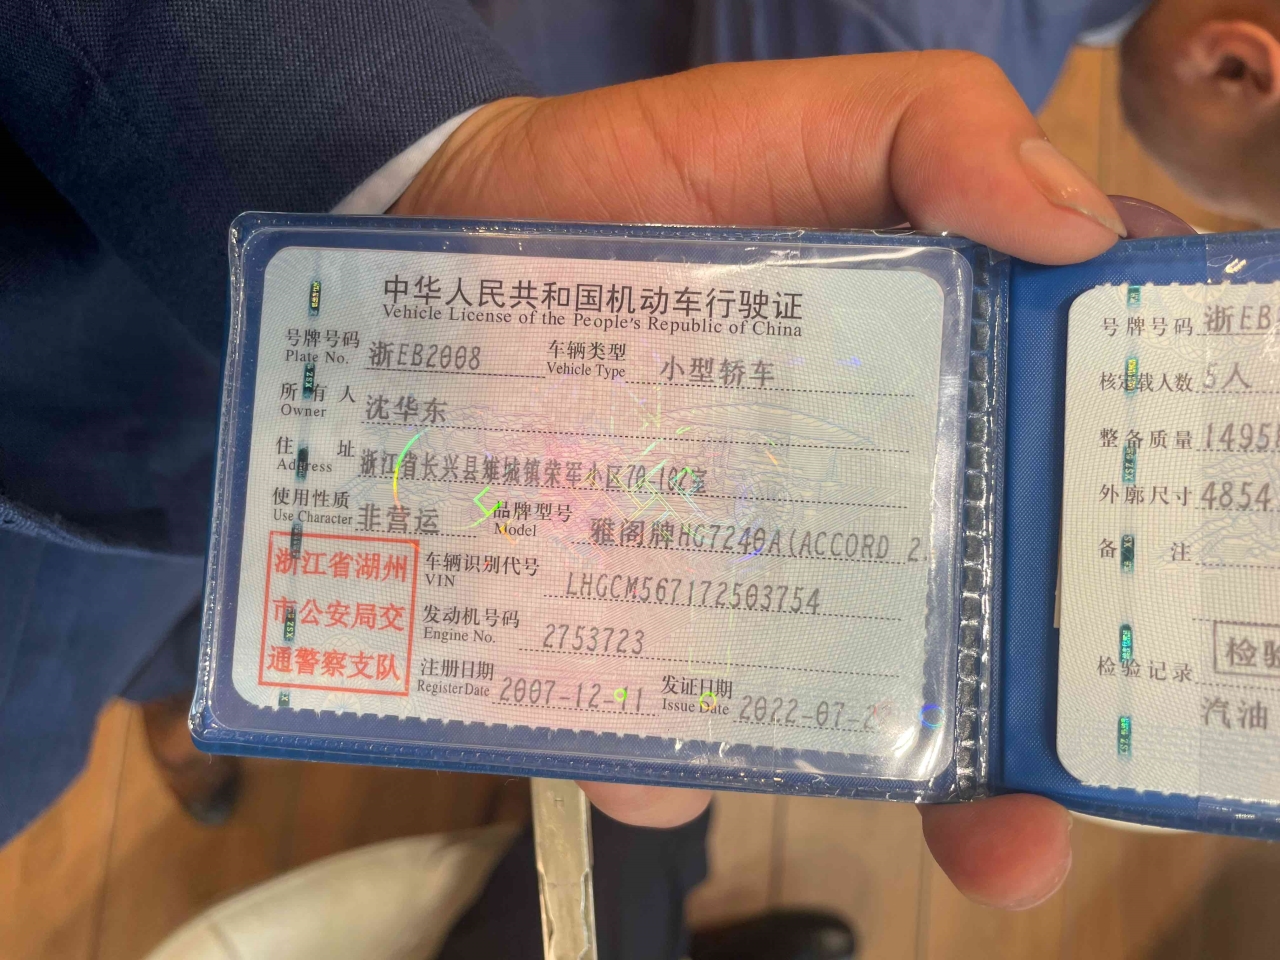 中华人民共和国机动车行驶证
Vehicle License of the People's Republic of China
号牌号码 浙EB2008 车辆类型 小型轿车
Plate No. Vehicle Type
所有人 沈华东
Owner
住址 浙江省长兴县雉城镇荣军小区70-102室
Address
使用性质 非营运 品牌型号 雅阁牌HG7240A(ACCORD 2.
Use Character Model
浙江省湖州
市公安局交
通警察支队
车辆识别代号 LHGCM567172503754
VIN
发动机号码 2753723
Engine No.
注册日期 2007-12-11 发证日期 2022-07-2
Register Date Issue Date
号牌号码 浙EB
核定载人数 5人
整备质量 1495
外廓尺寸 4854
备注
检验记录 检验
汽油